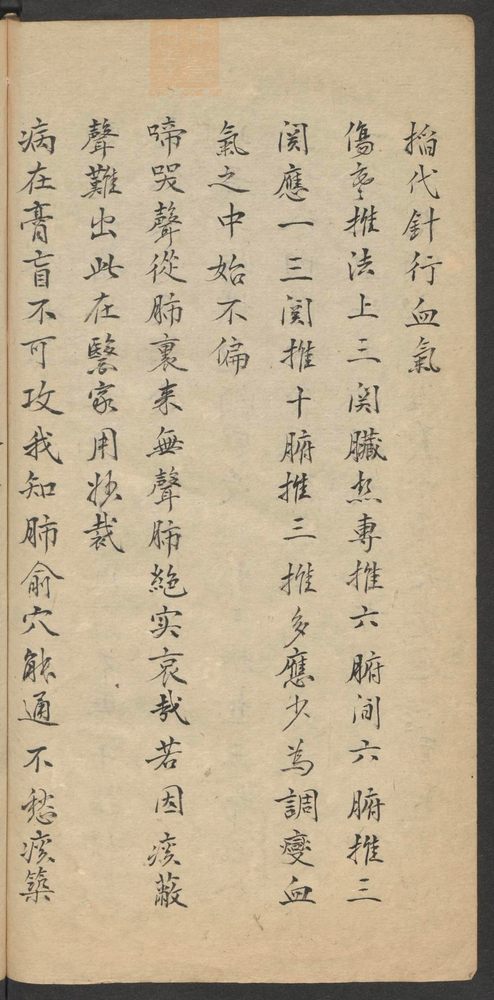 掐代針行血氣
傷寒推法上三関臓热専推六腑間六腑推三
関應一三関推十腑推三推多應少為調燮血
氣之中始不偏
啼哭聲從肺裏来無聲肺絶实哀哉若因痰蔽
聲難出此在醫家用妙裁
病在膏盲不可攻我知肺俞穴能通不愁痰築